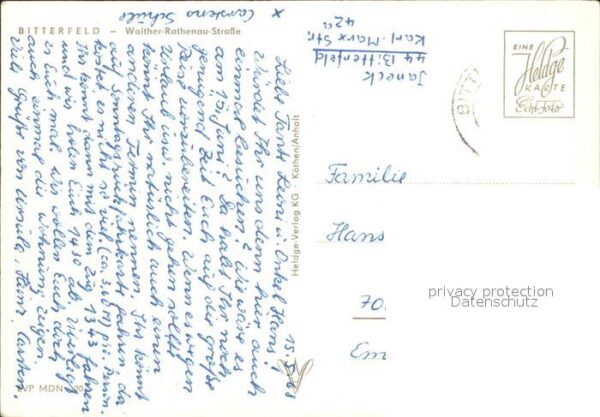 x Carstens Schule
BITTERFELD – Walther-Rathenau-Straße
Janeck
44 Bitterfeld
Karl-Marx Str.
42a
EINE
Heldge
KARTE
Echt Foto
Liebe Tante Leni u. Onkel Hans,
Würdet Ihr uns denn hier auch
einmal besuchen? Wie wäre es
am 15. Juni? Da habt Ihr noch
genügend Zeit Euch auf die große
Reise vorzubereiten. Wenn es wegen
Urlaub usw. nicht gehen sollte
könnt Ihr natürlich auch einen
anderen Termin nennen. Ihr könnt
auf Sonntagsrückfahrkarte fahren, da
kostet es nicht so viel (ca. 3,60 M) pro Person.
Ihr könnt dann mit dem Zug 13 43 fahren
und wir holen Euch 14 30 ab. Überlegt
es Euch mal, wir wollen Euch doch
auch einmal die Wohnung zeigen.
Viele Grüße von Ursula, Heinz, Carsten.
Heldge-Verlag KG · Köthen/Anhalt
Familie
Hans
70
privacy protection
Datenschutz
EVP MDN 20